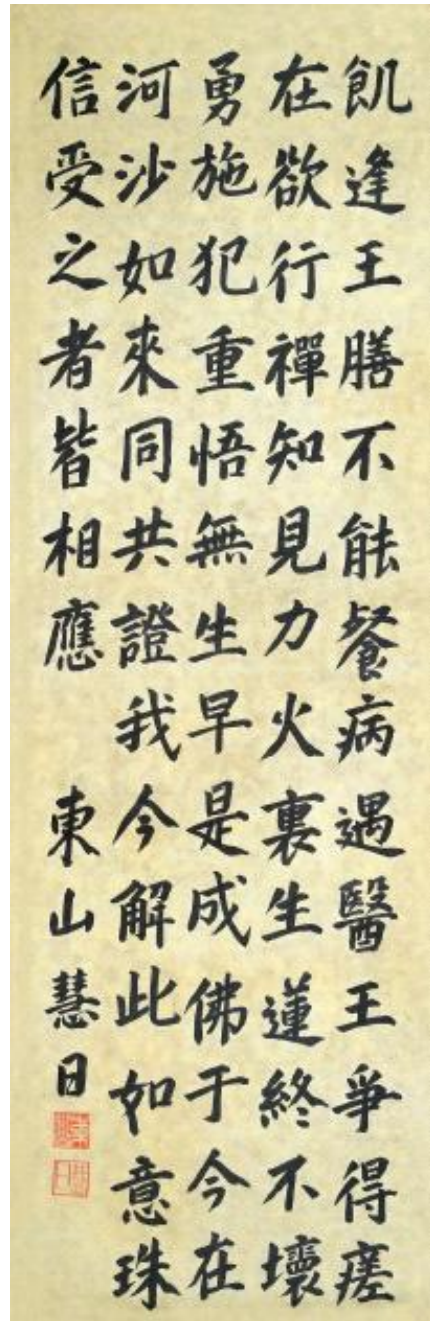 飢逢王膳不能餐病遇醫王爭得瘥
在欲行禪知見力火裏生蓮終不壞
勇施犯重悟無生早是成佛于今在
河沙如來同共證我今解此如意珠
信受之者皆相應 東山慧日